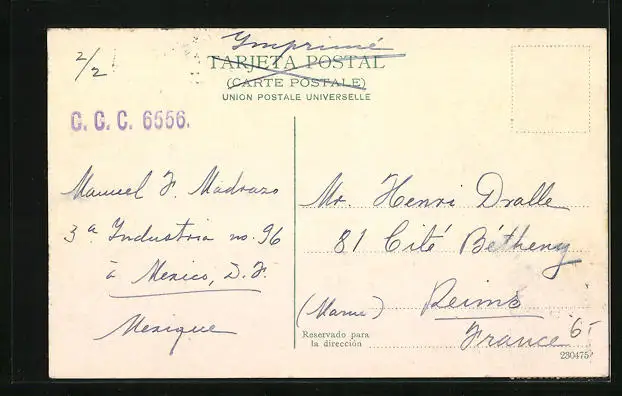 2/2
Imprimé
TARJETA POSTAL
(CARTE POSTALE)
UNION POSTALE UNIVERSELLE
C. C. C. 6556.
Manuel F. Madrazo
3ª Industria no. 96
à Mexico, D. F.
Mexique
Mr. Henri Dralle
81 Cité Bétheny
(Marne) Reims
France
Reservado para
la dirección
230475